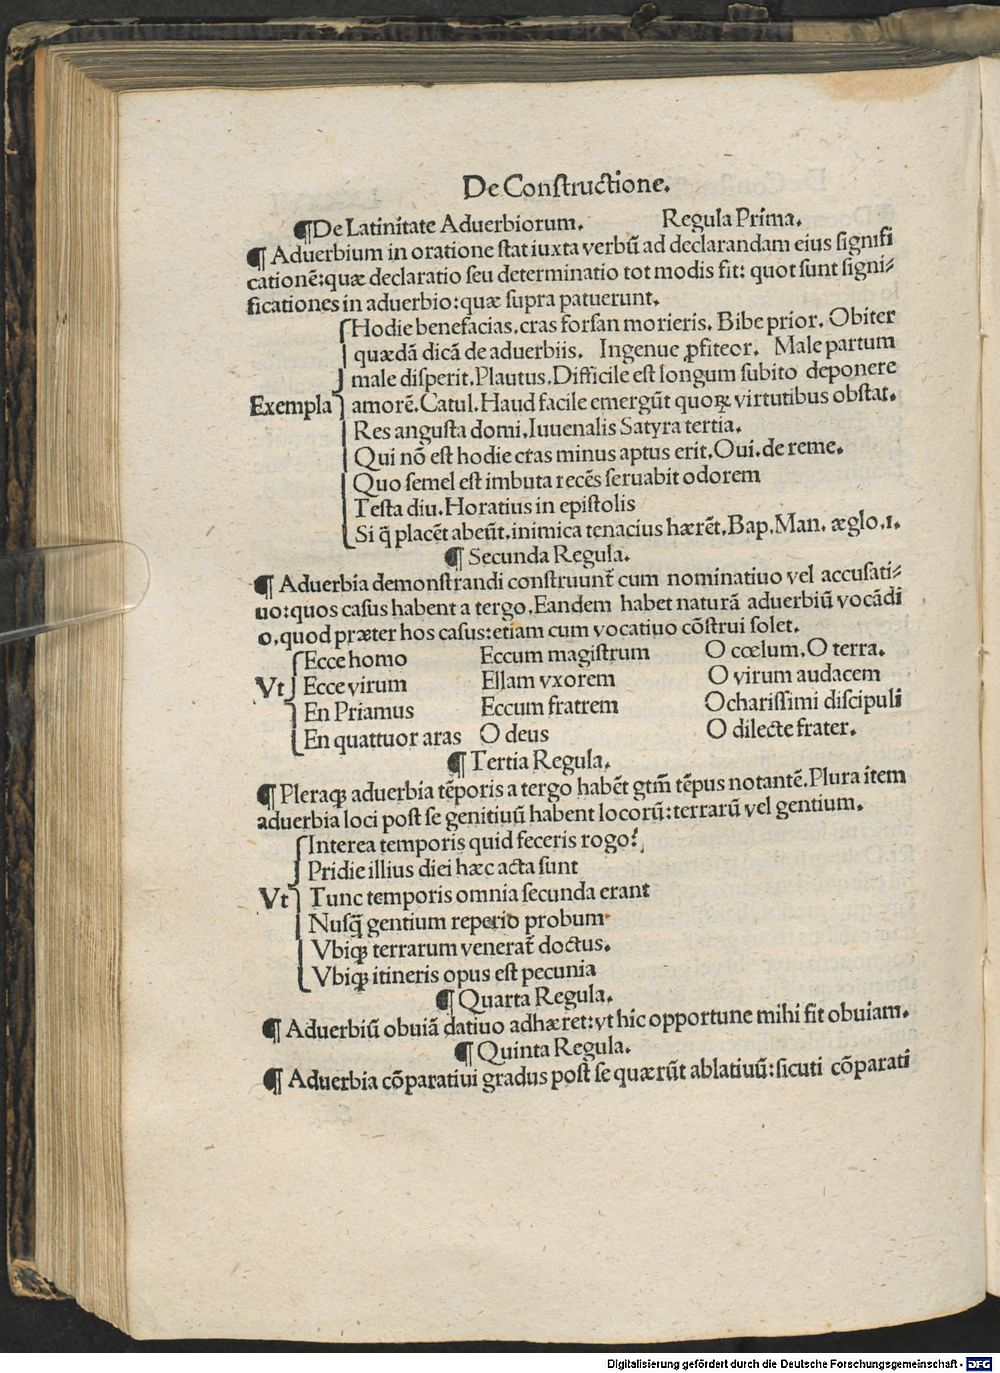 De Constructione.
¶De Latinitate Aduerbiorum. Regula Prima.
¶ Aduerbium in oratione stat iuxta verbū ad declarandam eius signifi
cationē:quæ declaratio seu determinatio tot modis fit: quot sunt signi⸗
ficationes in aduerbio:quæ supra patuerunt.
Hodie benefacias,cras forsan morieris. Bibe prior. Obiter
quædā dicā de aduerbiis. Ingenue ꝓfiteor. Male partum
male disperit.Plautus.Difficile est longum subito deponere
Exempla amorē.Catul.Haud facile emergūt quoꝝ virtutibus obstat.
Res angusta domi.Iuuenalis Satyra tertia.
Qui nō est hodie cras minus aptus erit.Oui.de reme.
Quo semel est imbuta recēs seruabit odorem
Testa diu.Horatius in epistolis
Si q̄ placēt abeūt.inimica tenacius hærēt.Bap.Man. æglo.1.
¶ Secunda Regula.
¶ Aduerbia demonstrandi construunt̄ cum nominatiuo vel accusati⸗
uo:quos casus habent a tergo.Eandem habet naturā aduerbiū vocādi
o,quod præter hos casus:etiam cum vocatiuo cōstrui solet.
Ecce homo Eccum magistrum O cœlum.O terra.
Vt Ecce virum Ellam vxorem O virum audacem
En Priamus Eccum fratrem O charissimi discipuli
En quattuor aras O deus O dilecte frater.
¶ Tertia Regula.
¶ Pleraqꝫ aduerbia tēporis a tergo habēt gtm̄ tēpus notantē.Plura item
aduerbia loci post se genitiuū habent locorū:terrarū vel gentium.
Interea temporis quid feceris rogo?
Pridie illius diei hæc acta sunt
Vt Tunc temporis omnia secunda erant
Nusq̄ gentium reperio probum
Vbiqꝫ terrarum venerat̄ doctus.
Vbiqꝫ itineris opus est pecunia
¶ Quarta Regula.
¶ Aduerbiū obuiā datiuo adhæret:vt hic opportune mihi fit obuiam.
¶ Quinta Regula.
¶ Aduerbia cōparatiui gradus post se quærūt ablatiuū:sicuti cōparati
Digitalisierung gefördert durch die Deutsche Forschungsgemeinschaft - DFG